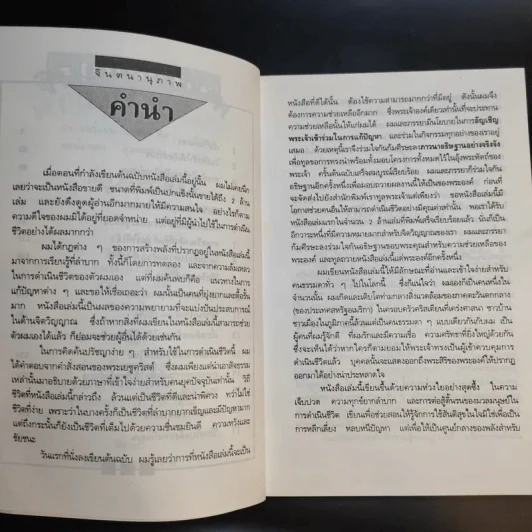 จินตนานุภาพ
คำนำ
เมื่อตอนที่กำลังเขียนต้นฉบับหนังสือเล่มนี้อยู่นั้น ผมไม่เคยนึก
เลยว่าจะเป็นหนังสือขายดี ขนาดที่พิมพ์เป็นปกแข็งนั้นขายได้ถึง 2 ล้าน
เล่ม และยังดึงดูดผู้อ่านอีกมากมายให้มีความสนใจ อย่างไรก็ตาม
ความดีใจของผมมิได้อยู่ที่ยอดจำหน่าย แต่อยู่ที่มีผู้นำไปใช้ในการดำเนิน
ชีวิตอย่างได้ผลมากกว่า
ผมได้กฎต่าง ๆ ของการสร้างพลังที่ปรากฏอยู่ในหนังสือเล่มนี้
มาจากการเรียนรู้ที่ลำบาก ทั้งนี้ก็โดยการทดลอง และจากความล้มเหลว
ในการดำเนินชีวิตของตัวผมเอง แต่ที่ผมค้นพบก็คือ แนวทางใน
การแก้ปัญหาต่าง ๆ และขอให้เชื่อเถอะว่า ผมนั้นเป็นคนที่ยุ่งยากและดื้อรั้น
มาก หนังสือเล่มนี้เป็นผลของความพยายามที่จะแบ่งปันประสบการณ์
ในด้านจิตวิญญาณ ซึ่งถ้าหากสิ่งที่ผมเขียนในหนังสือเล่มนี้สามารถช่วย
ตัวผมเองได้แล้ว ก็ย่อมจะช่วยผู้อื่นได้ด้วยเช่นกัน
ในการคิดค้นปรัชญาง่าย ๆ สำหรับใช้ในการดำเนินชีวิตนี้ ผม
ได้คำตอบจากคำสั่งสอนของพระเยซูคริสต์ ซึ่งผมเพียงแต่นำเอาสัจธรรม
เหล่านั้นมาอธิบายด้วยภาษาที่เข้าใจง่ายสำหรับคนยุคปัจจุบันเท่านั้น วิถี
ชีวิตที่หนังสือเล่มนี้กล่าวถึง ล้วนแต่เป็นชีวิตที่ดีและน่าพิศวง ทว่าไม่ใช่
ชีวิตที่ง่าย เพราะว่าในบางครั้งก็เป็นชีวิตที่ลำบากยากเข็ญและมีปัญหามาก
แต่ถึงกระนั้นก็ยังเป็นชีวิตที่เต็มไปด้วยความชื่นชมยินดี ความหวังและ
ชัยชนะ
วันแรกที่นั่งลงเขียนต้นฉบับ ผมรู้เลยว่าการที่หนังสือเล่มนี้จะเป็น
หนังสือที่ดีได้นั้น ต้องใช้ความสามารถมากกว่าที่มีอยู่ ดังนั้นผมจึง
ต้องการความช่วยเหลืออีกมาก ซึ่งพระเจ้าองค์เดียวเท่านั้นที่จะประทาน
ความช่วยเหลือนั้นให้แก่ผมได้ ผมและภรรยามีนโยบายในการอัญเชิญ
พระเจ้าเข้าร่วมในการแก้ปัญหา และร่วมในกิจกรรมทุกอย่างของเราอยู่
เสมอ ด้วยเหตุนี้เราจึงร่วมใจกันก้มศีรษะลงภาวนาอธิษฐานอย่างจริงจัง
เพื่อทูลขอการทรงนำพร้อมทั้งมอบโครงการทั้งหมดไว้ในอุ้งพระหัตถ์ของ
พระเจ้า ครั้นต้นฉบับเสร็จสมบูรณ์เรียบร้อย ผมและภรรยาก็ร่วมใจกัน
อธิษฐานอีกครั้งหนึ่งเพื่อมอบถวายผลงานนี้ให้เป็นของพระองค์ ก่อนที่
จะจัดส่งไปยังสำนักพิมพ์เราทูลพระเจ้าแต่เพียงว่า ขอหนังสือเล่มนี้มี
โอกาสช่วยคนอื่นให้สามารถดำเนินชีวิตอย่างมีคุณค่าเท่านั้น พอเราได้รับ
หนังสือเล่มแรกจากจำนวน 2 ล้านเล่มที่พิมพ์เสร็จเรียบร้อยแล้ว นั่นก็เป็น
อีกวาระหนึ่งที่มีความหมายมากสำหรับจิตวิญญาณของเรา ผมและภรรยา
ก้มศีรษะร่วมใจกันอธิษฐานขอบพระคุณสำหรับความช่วยเหลือของพระ
องค์ และทูลถวายหนังสือเล่มนี้แด่พระองค์อีกครั้งหนึ่ง
ผมเขียนหนังสือเล่มนี้ให้มีลักษณะที่อ่านและเข้าใจง่ายสำหรับ
คนธรรมดาทั่ว ๆ ไปในโลกนี้ ซึ่งก็แน่ใจว่า ผมเองก็เป็นคนหนึ่งใน
จำนวนนั้น ผมเกิดและเติบโตท่ามกลางสิ่งแวดล้อมของภาคตะวันตกกลาง
(ของประเทศสหรัฐอเมริกา) ในครอบครัวคริสเตียนที่เคร่งศาสนา ชาวบ้าน
ชาวเมืองในภูมิภาคนี้ล้วนแต่เป็นคนธรรมดา ๆ แบบเดียวกันกับผม เป็น
ผู้คนที่ผมรู้จักดี ที่ผมรักและมีความเชื่อ ความศรัทธาที่ยิ่งใหญ่ด้วยกัน
ซึ่งจะเห็นได้ว่าหากใครก็ตามยอมให้พระเจ้าทรงเป็นผู้เข้าควบคุมการ
ดำเนินชีวิตแล้ว บุคคลนั้นจะแสดงออกถึงพระสิริของพระองค์ให้ปรากฏ
ออกมาได้อย่างน่าประหลาดใจ
หนังสือเล่มนี้เขียนขึ้นด้วยความห่วงใยอย่างสุดซึ้ง ในความ
เจ็บปวด ความทุกข์ยากลำบาก และการต่อสู้ดิ้นรนของมวลมนุษย์ใน
การดำเนินชีวิต เขียนเพื่อช่วยสอนให้รู้จักการใช้สันติสุขในใจมิใช่เพื่อเป็น
การหลีกเลี่ยง หลบหนีปัญหา แต่เพื่อให้เป็นศูนย์กลางของพลังสำหรับ